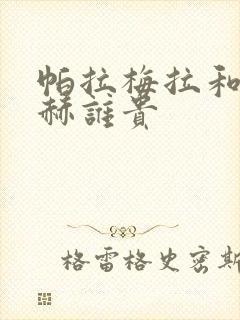 帕拉梅拉和
赫誰貴
格雷格史密斯